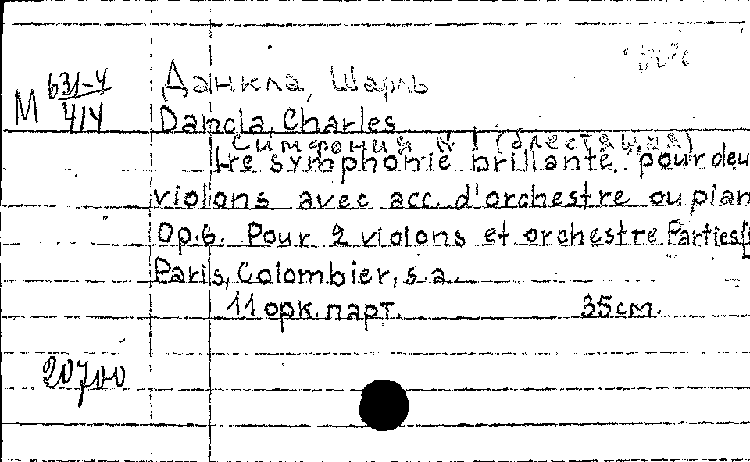 Данкла, Шарль
М 631-4/414
Dancla, Charles
Симфония №1 (блестящая)
1re symphonie brillante pour deu
violons avec acc. d'orchestre ou pian
Op.6. Pour 2 violons et orchestre. Parties
Paris, Colombier, s.a.
11 орк. парт. 35 см.
20700